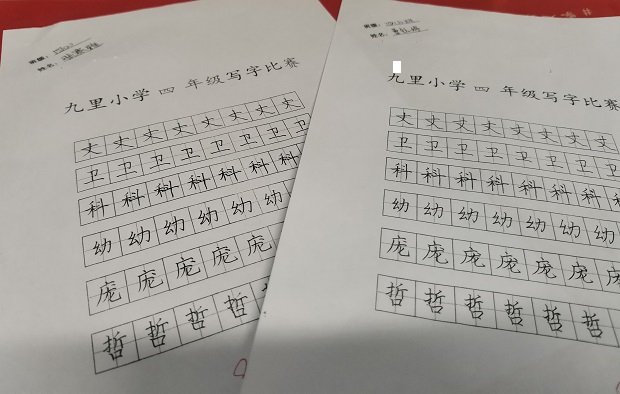 班级:
姓名:
九里小学 四 年级写字比赛
丈 丈 丈 丈 丈 丈 丈 丈
卫 卫 卫 卫 卫 卫 卫 卫
科 科 科 科 科 科 科
幼 幼 幼 幼 幼 幼
庞 庞 庞 庞 庞
哲 哲 哲 哲
班级:
姓名:
九里小学 四 年级写字比赛
丈 丈 丈 丈 丈 丈 丈 丈
卫 卫 卫 卫 卫 卫 卫 卫
科 科 科 科 科 科 科 科
幼 幼 幼 幼 幼 幼 幼
庞 庞 庞 庞 庞 庞 庞
哲 哲 哲 哲 哲 哲